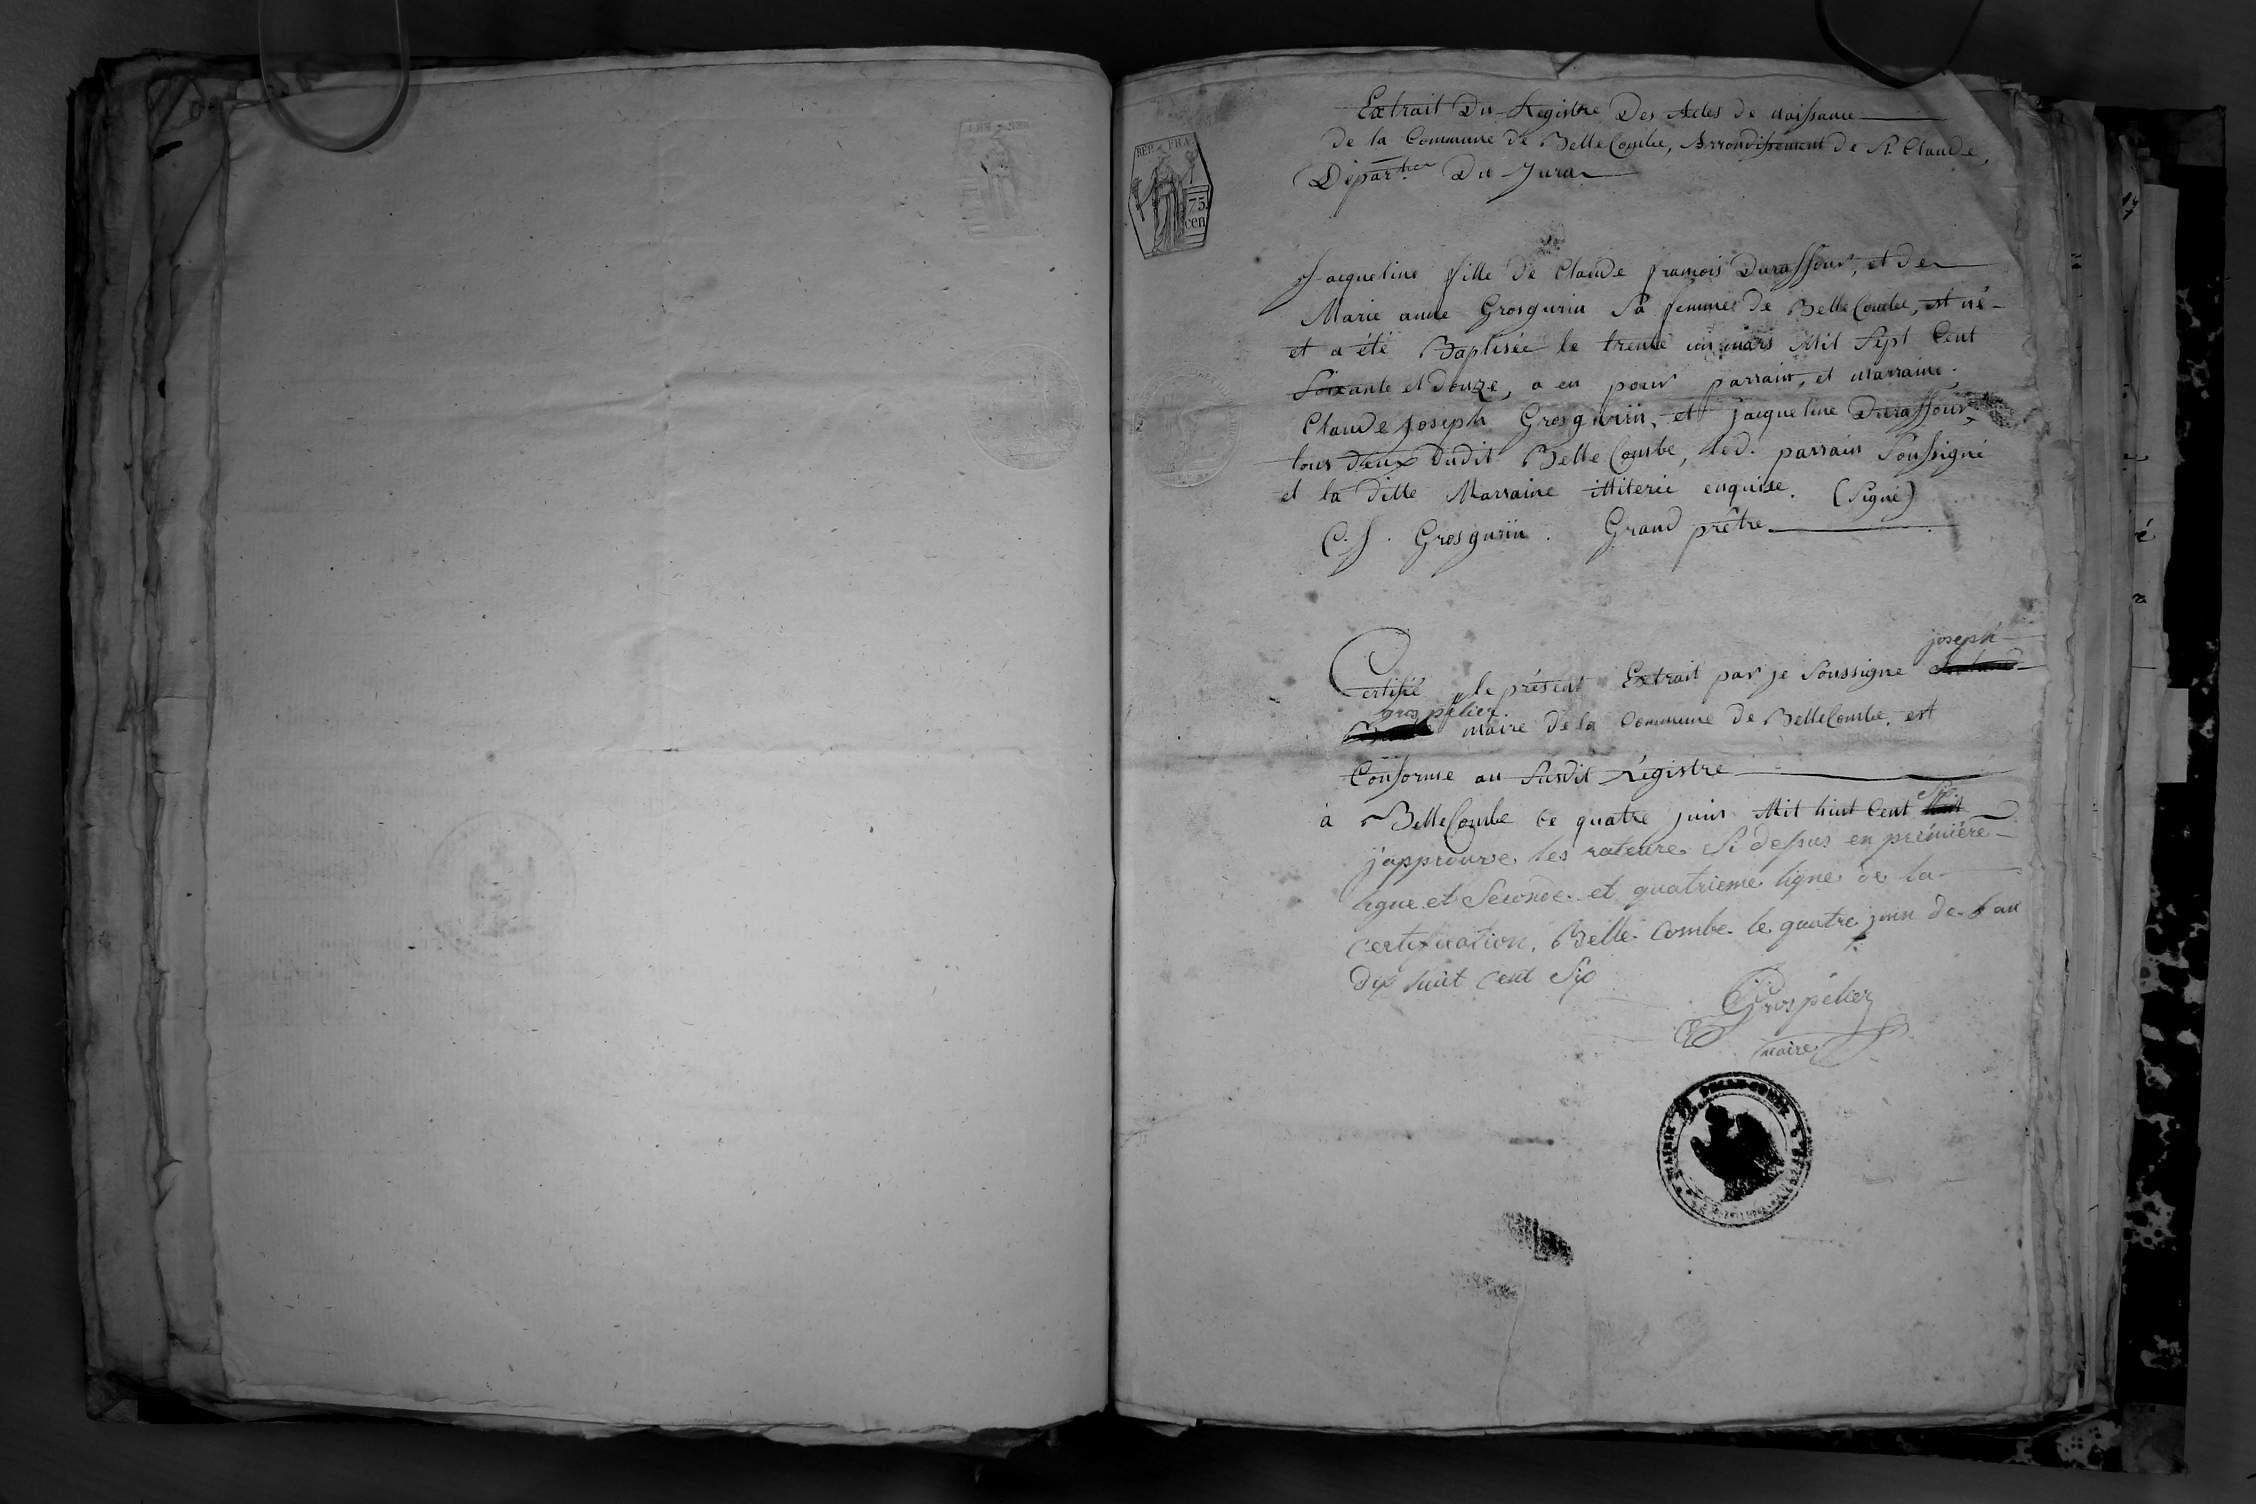 REP. FRA.
75
cen
Extrait Du Registre Des Actes de naissance
de la Commune de BelleCombe, Arrondissement de St. Claude,
Départ.ent Du Jura
Jacqueline fille de Claude françois Duraffour, et de
Marie anne Grosgurin Sa femme de BelleCombe, est né
et a été Baptisée le trente un mars Mil Sept Cent
Soixante et douze, a eu pour parrain, et marraine.
Claude Joseph Grosgurin, et jacqueline Duraffour,
tous deux dudit BelleCombe, led. parrain Soussigné
et la ditte Marraine illiterée enquise. (Signé)
C. J. Grosgurin. Grand prêtre
joseph
Certifié le présent Extrait par je Soussigné
grospélier
maire de la Commune de BelleCombe. est
Conforme au Susdit Régistre
six
à BelleCombe ce quatre juin Mil huit Cent huit
j'approuve les rateure Si dessus en première
ligne et Seconde et quatrieme ligne de la
certification, Belle Combe le quatre juin de l'an
dix huit cent Six
Grospélier
maire
MAIRIE DE BELLE-COMBE